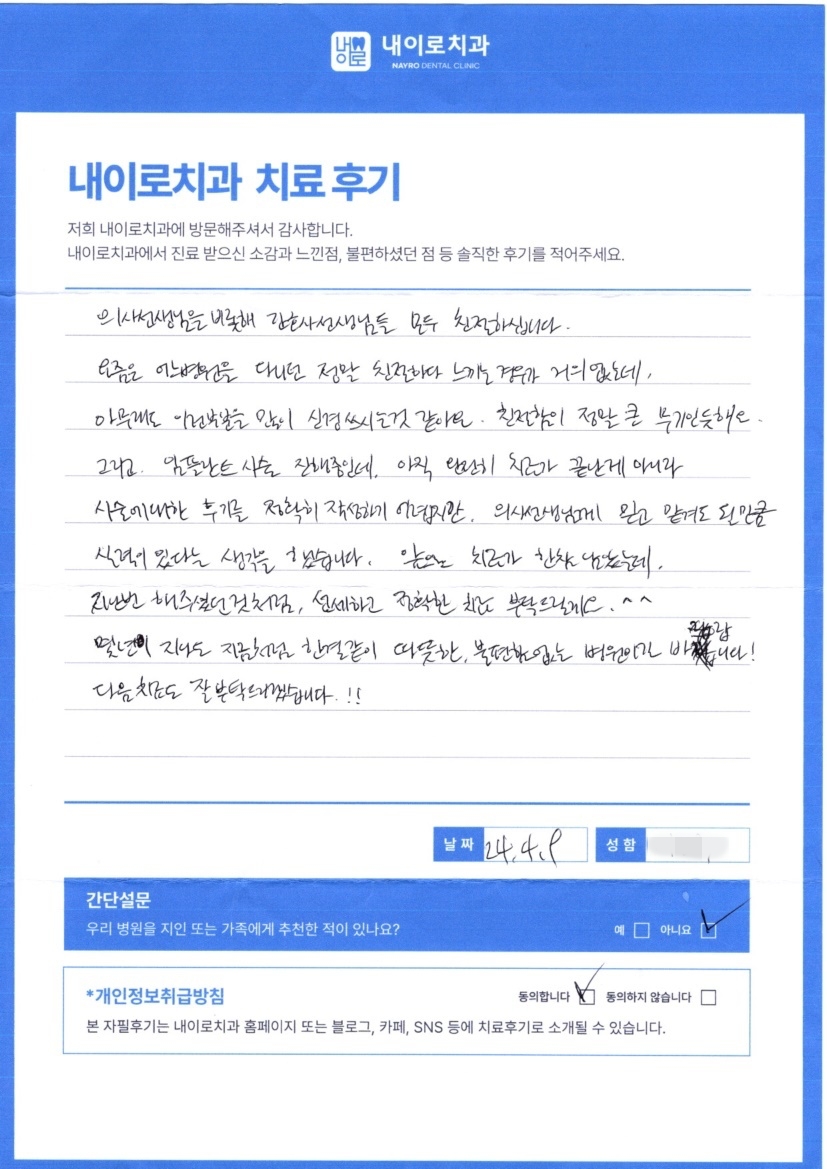 내이로
내이로치과
NAYRO DENTAL CLINIC
내이로치과 치료 후기
저희 내이로치과에 방문해주셔서 감사합니다.
내이로치과에서 진료 받으신 소감과 느낀점, 불편하셨던 점 등 솔직한 후기를 적어주세요.
의사선생님을 비롯해 간호사선생님들 모두 친절하십니다.
요즘은 어느병원을 다니던 정말 친절하다 느끼는 경우가 거의 없는데,
아무래도 이런부분을 많이 신경쓰시는것 같아요. 친절함이 정말 큰 무기인듯해요.
그리고. 임플란트 시술 진행중인데, 아직 완전히 치료가 끝난게 아니라
시술에대한 후기를 정확히 작성하기 어렵지만, 의사선생님께 믿고 맡겨도 될만큼
실력이 있다는 생각을 했습니다. 앞으로 치료가 한참 남았는데,
지난번 해주셨던것처럼, 섬세하고 정확한 치료 부탁드릴게요. ^^
몇년이 지나도 지금처럼 한결같이 따뜻한, 불편함없는 병원이길 바랍니다!
다음치료도 잘부탁드리겠습니다. !!
날 짜 24. 4. 9
성 함
간단설문
우리 병원을 지인 또는 가족에게 추천한 적이 있나요? 예 아니요
*개인정보취급방침 동의합니다 동의하지 않습니다
본 자필후기는 내이로치과 홈페이지 또는 블로그, 카페, SNS 등에 치료후기로 소개될 수 있습니다.